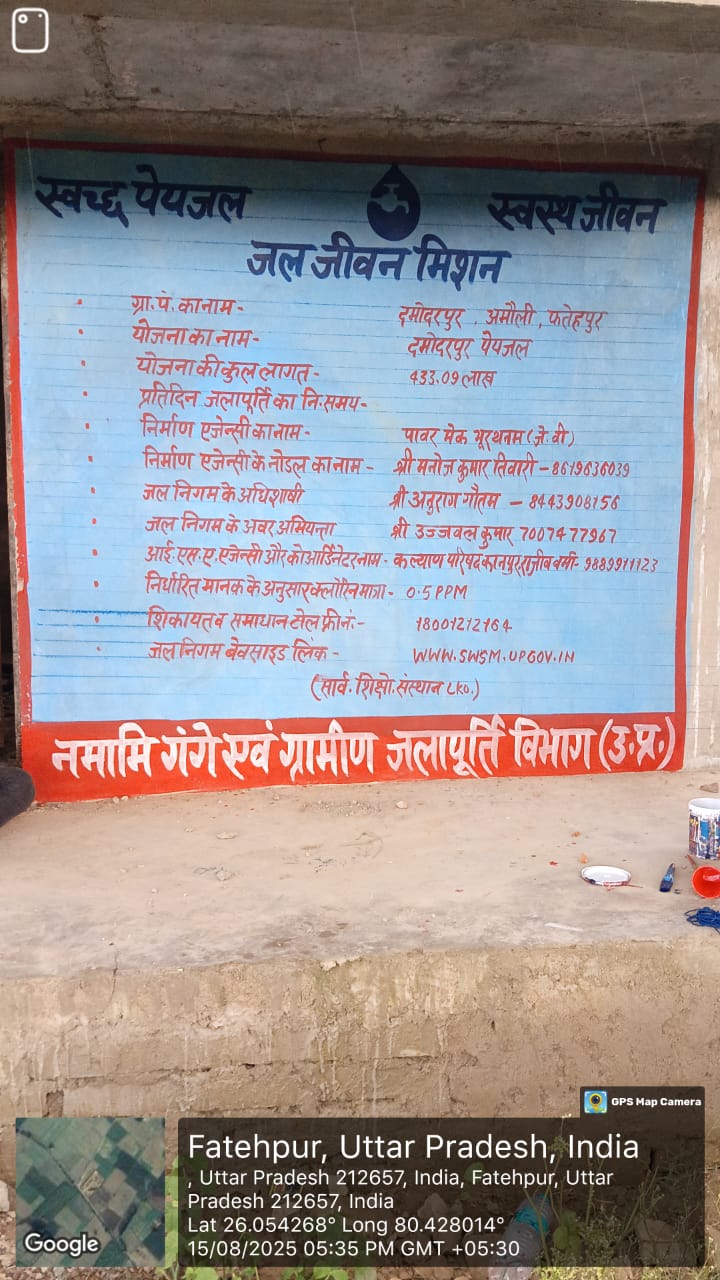 स्वच्छ पेयजल स्वस्थ जीवन
जल जीवन मिशन
ग्रा.पं. का नाम - दमोदरपुर , अमौली , फतेहपुर
योजना का नाम - दमोदरपुर पेयजल
योजना की कुल लागत - 433.09 लाख
प्रतिदिन जलापूर्ति का नि.समय -
निर्माण एजेन्सी का नाम - पावर मेक भूरथनम (जे.वी)
निर्माण एजेन्सी के नोडल का नाम - श्री मनोज कुमार तिवारी - 8619636039
जल निगम के अधिशाषी श्री अनुराग गौतम - 8443908156
जल निगम के अवर अभियन्ता श्री उज्जवल कुमार 7007477967
आई.एस.ए.एजेन्सी और कोआर्डिनेटर नाम - कल्याण परिषद कानपुर राजीव वर्मा - 9889911123
निर्धारित मानक के अनुसार क्लोरिन मात्रा - 0.5 PPM
शिकायत व समाधान टोल फ्री नं.- 18001212164
जल निगम बेवसाइड लिंक - WWW.SWSM.UPGOV.IN
(सार्व. शिक्षो. संस्थान LKO.)
नमामि गंगे एवं ग्रामीण जलापूर्ति विभाग (उ.प्र.)
GPS Map Camera
Fatehpur, Uttar Pradesh, India
, Uttar Pradesh 212657, India, Fatehpur, Uttar
Pradesh 212657, India
Lat 26.054268° Long 80.428014°
15/08/2025 05:35 PM GMT +05:30
Google